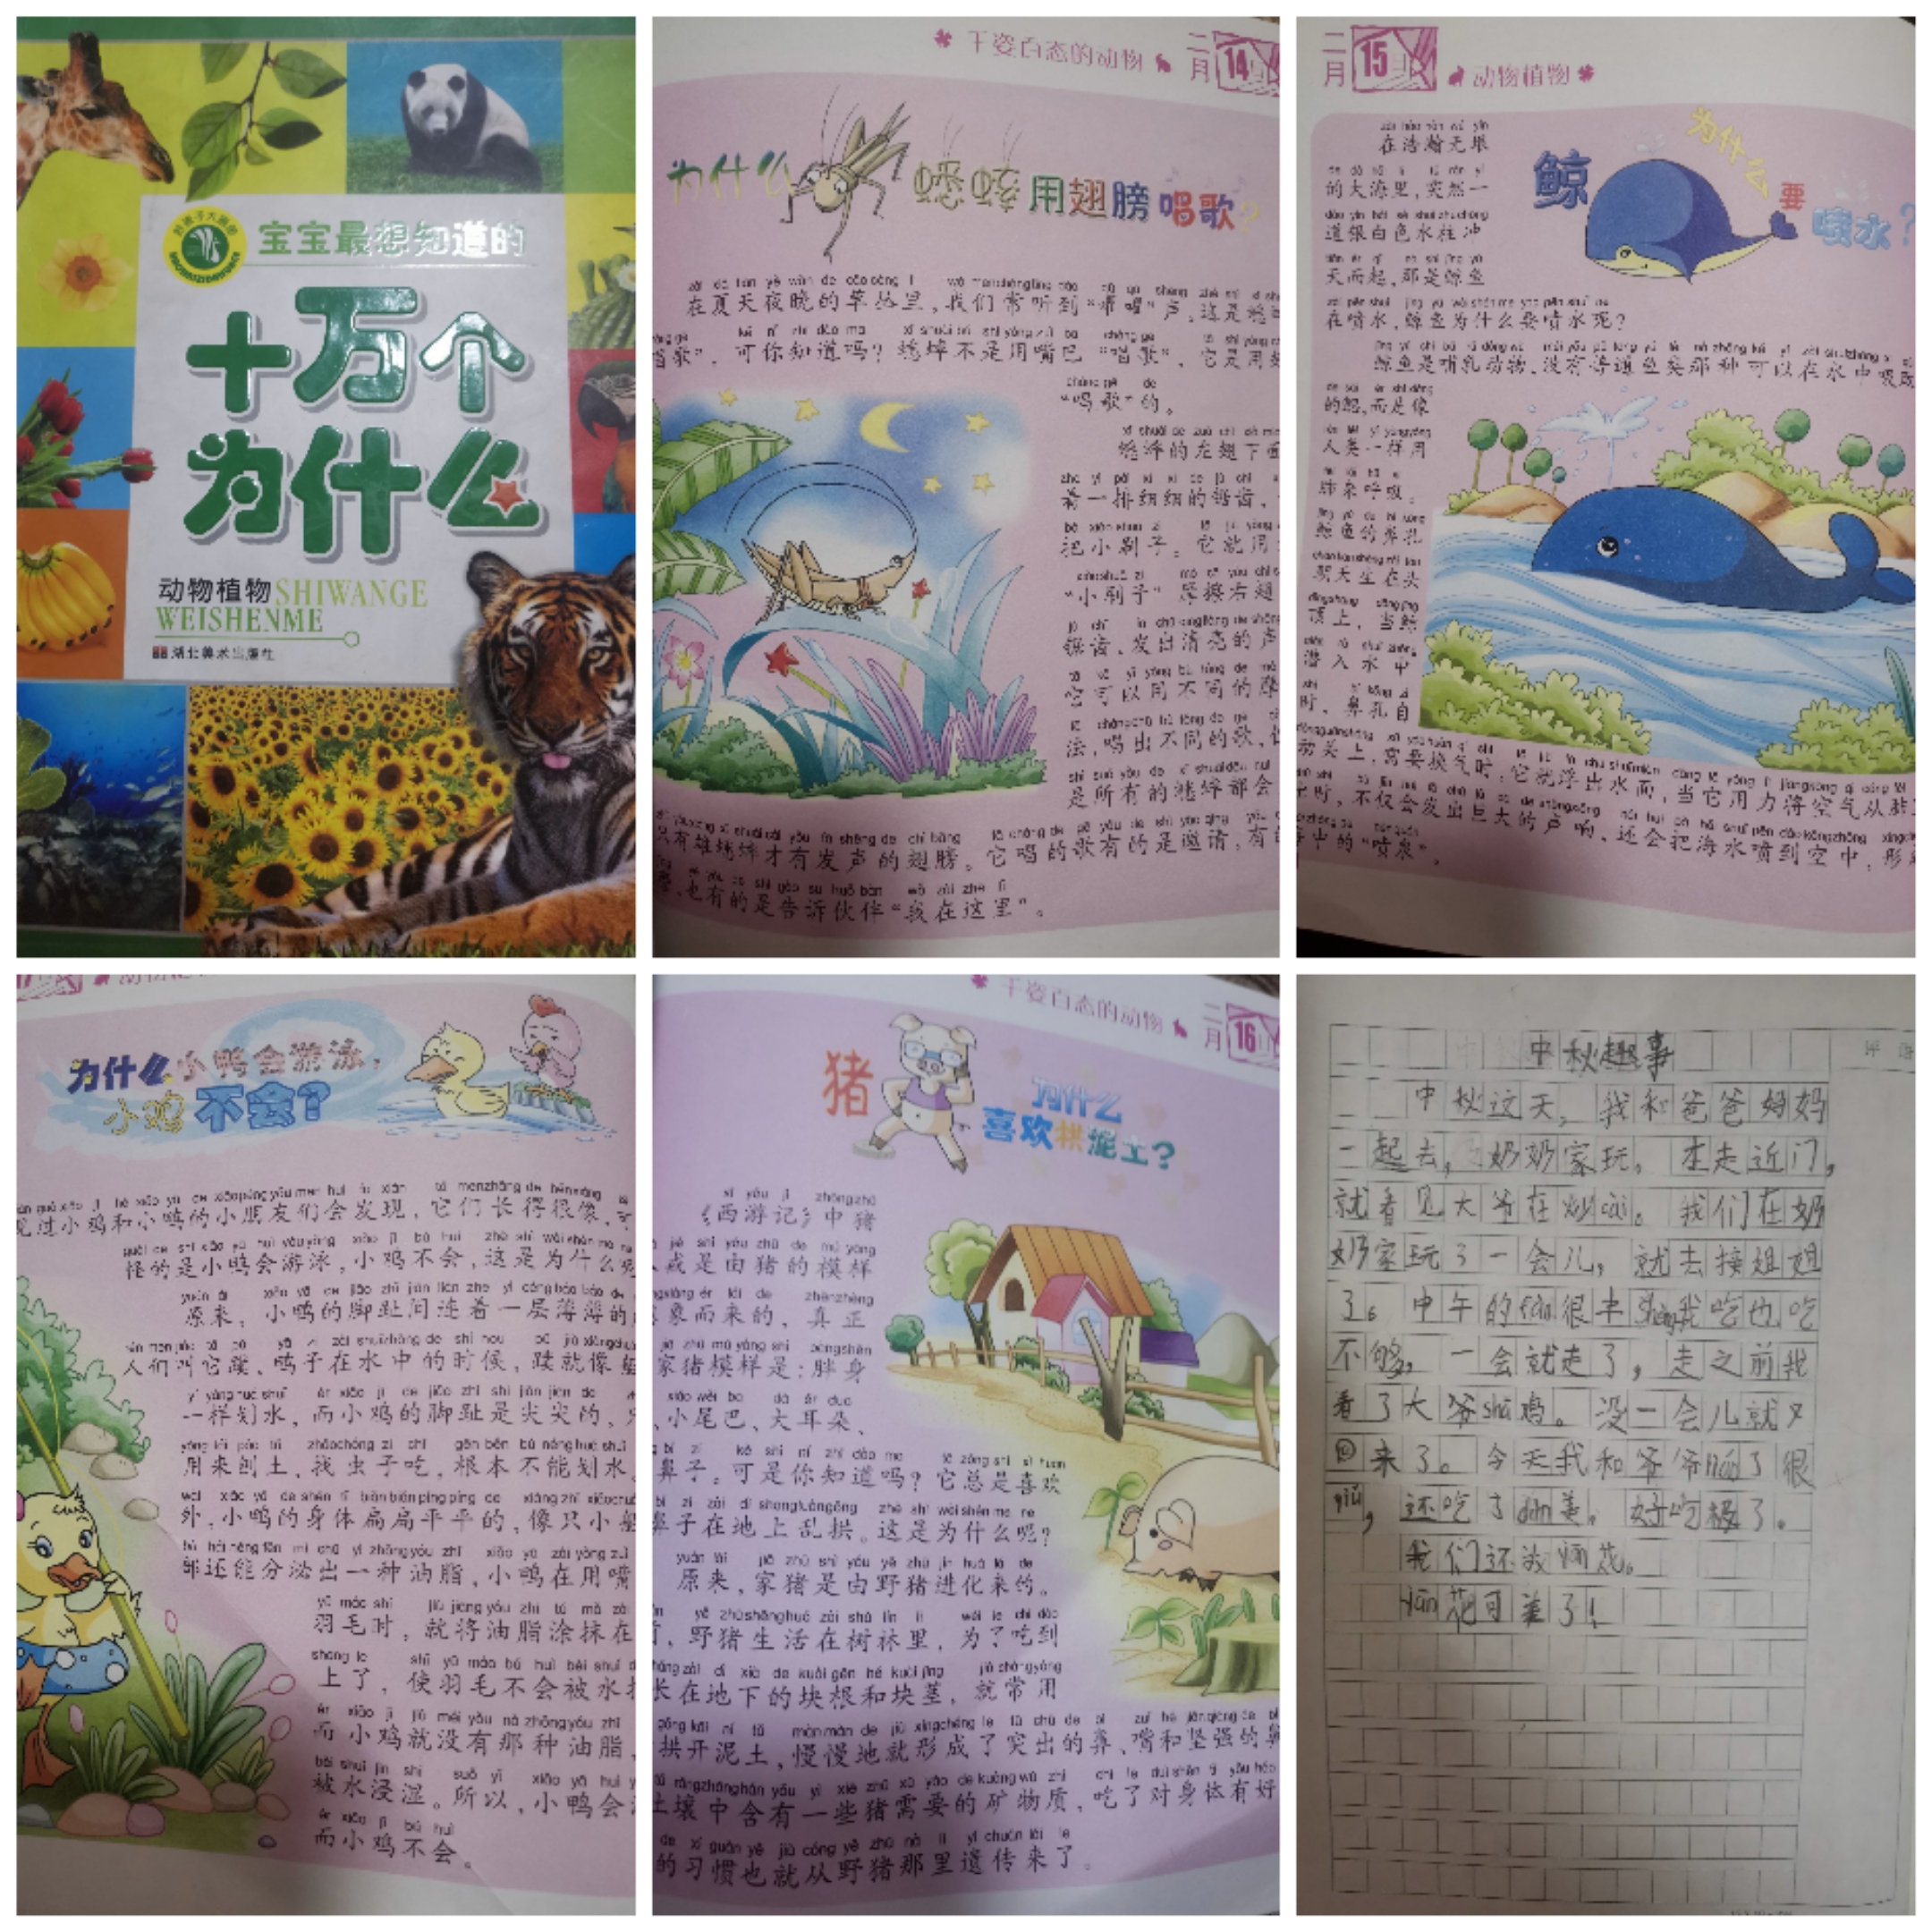 宝宝最想知道的
十万个
为什么
动物植物SHIWANGE
WEISHENME
湖北美术出版社
千姿百态的动物
二月
14
为什么蟋蟀用翅膀唱歌?
在夏天夜晚的草丛里,我们常听到“㘗㘗”声,这是蟋
唱歌”,可你知道吗?蟋蟀不是用嘴巴“唱歌”,它是用
“唱歌”的。
蟋蟀的左翅下面
着一排细细的锯齿,
把小刷子。它就用
“小刷子”摩擦右翅
锯齿,发出清亮的声
它可以用不同的摩
法,唱出不同的歌,
是所有的蟋蟀都会
只有雄蟋蟀才有发声的翅膀。它唱的歌有的是邀请,有
,也有的是告诉伙伴“我在这里”。
二月
15
动物植物
鲸为什么要喷水?
在浩瀚无垠
的大海里,突然一
道银白色水柱冲
天而起,那是鲸鱼
在喷水,鲸鱼为什么要喷水呢?
鲸鱼是哺乳动物,没有普通鱼类那种可以在水中吸
的鳃,而是像
人类一样用
肺来呼吸。
鲸鱼的鼻孔
朝天生在头
顶上,当鲸
潜入水中
时,鼻孔自
动关上,需要换气时,它就浮出水面,当它用力将空气从
出时,不仅会发出巨大的声响,还会把海水喷到空中,形
海中的“喷泉”。
为什么小鸭会游泳,
小鸡不会?
见过小鸡和小鸭的小朋友们会发现,它们长得很像,可
怪的是小鸭会游泳,小鸡不会,这是为什么呢
原来,小鸭的脚趾间连着一层薄薄的
人们叫它蹼,鸭子在水中的时候,蹼就像
一样划水,而小鸡的脚趾是尖尖的,只
用来刨土,找虫子吃,根本不能划水。
外,小鸭的身体扁扁平平的,像只小船
部还能分泌出一种油脂,小鸭在用嘴
羽毛时,就将油脂涂抹在
上了,使羽毛不会被水
而小鸡就没有那种油脂,
被水浸湿。所以,小鸭会
而小鸡不会。
千姿百态的动物
二月
16
猪为什么
喜欢拱泥土?
《西游记》中猪
戒是由猪的模样
象而来的,真正
家猪模样是:胖身
、小尾巴、大耳朵、
鼻子。可是你知道吗?它总是喜欢
鼻子在地上乱拱。这是为什么呢?
原来,家猪是由野猪进化来的。
,野猪生活在树林里,为了吃到
长在地下的块根和块茎,就常用
拱开泥土,慢慢地就形成了突出的鼻、嘴和坚强的鼻
土壤中含有一些猪需要的矿物质,吃了对身体有好
的习惯也就从野猪那里遗传来了。
评语
中秋趣事
中秋这天,我和爸爸妈妈
一起去,奶奶家玩。才走近门,
就看见大爷在炒cài。我们在奶
奶家玩了一会儿,就去接姐姐
了。中午的fàn很丰shèng我吃也吃
不够,一会就走了,走之前我
看了大爷shā鸡。没一会儿就又
回来了。今天我和爷爷liáo了很
jiǔ,还吃了dàn羹,好吃极了。
我们还放yān花。
yān花可美了!